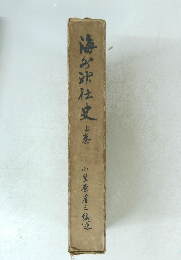 海外神社史
上巻
小笠原省三編述